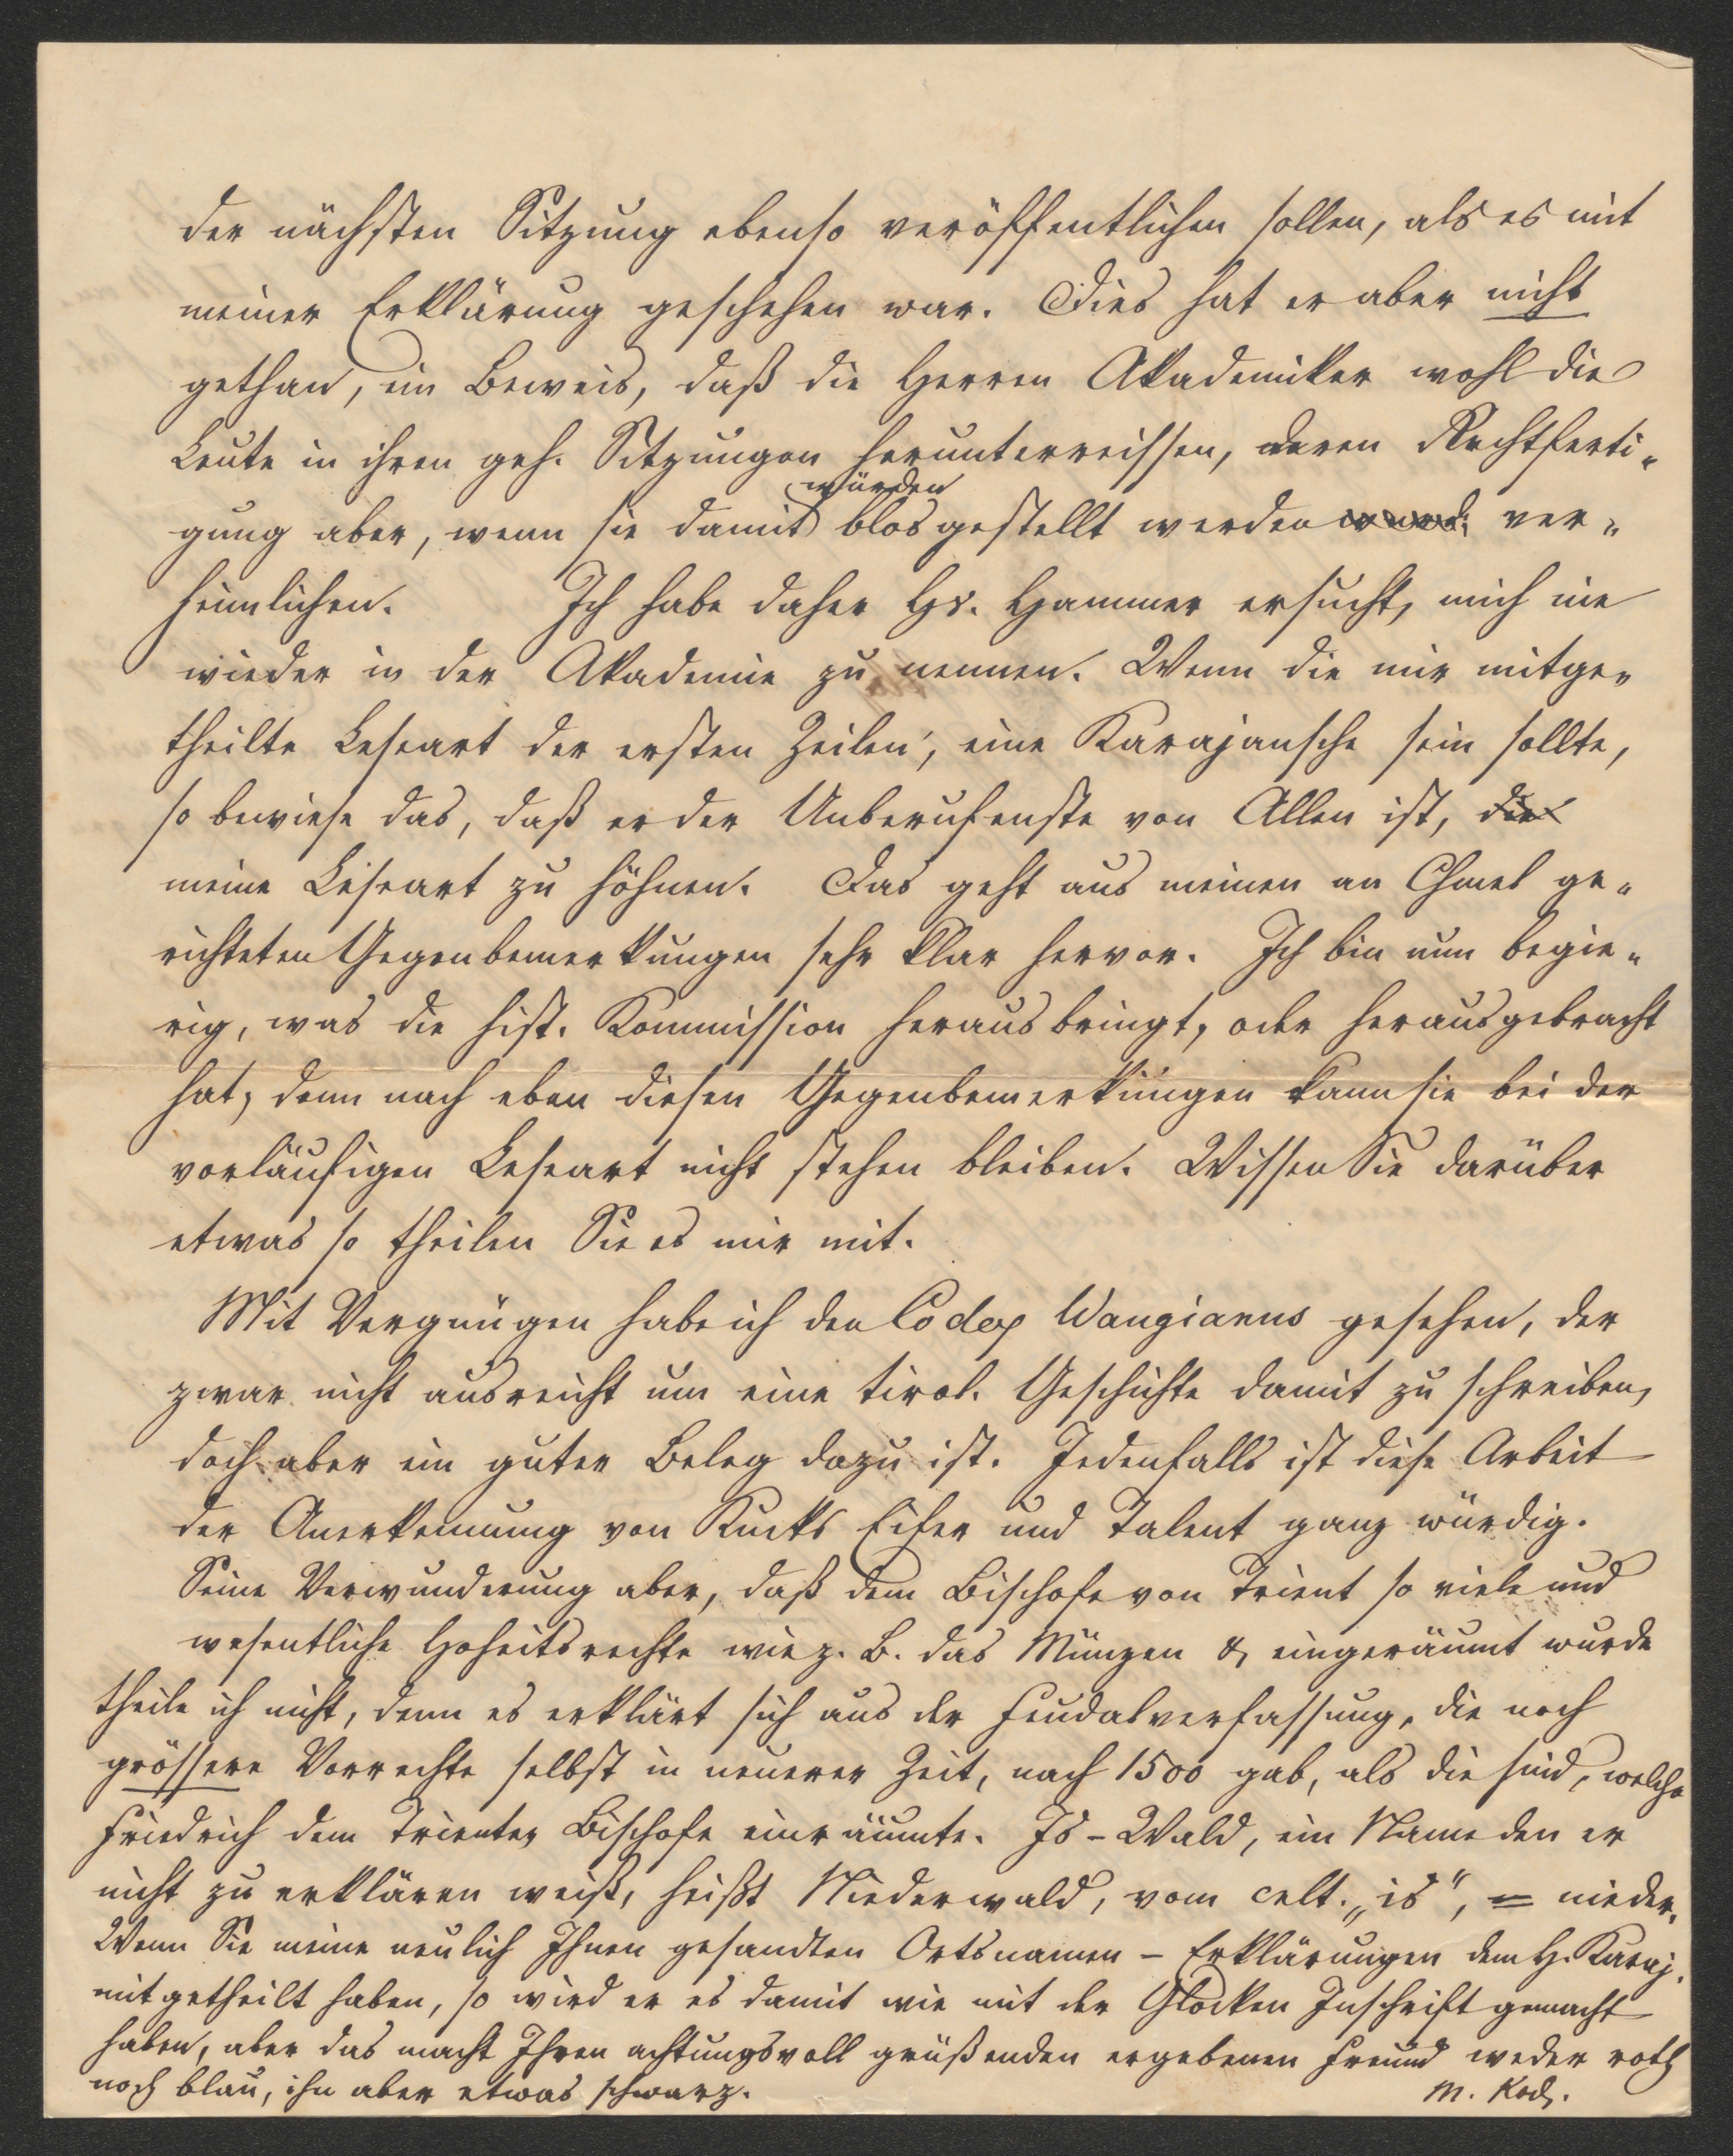 der nächsten Sitzung ebenso veröffentlichen sollen, als es mit
meiner Erklärung geschehen war. Dies hat er aber nicht
gethan, ein Beweis, daß die Herren Akademiker wohl die
Leute in ihren geh. Sitzungen herunterreissen, deren Rechtferti-
gung aber, wenn sie damit würden blosgestellt werden ver-
heimlichen. Ich habe daher Hr. Hammer ersucht, mich nie
wieder in der Akademie zu nennen. Wenn die mir mitge-
theilte Leseart der ersten Zeilen, eine Karajansche sein sollte,
so bewiese das, daß er der Unberufenste von Allen ist, die
meine Leseart zu höhnen. Das geht aus meinen an Chmel ge-
richteten Gegenbemerkungen sehr klar hervor. Ich bin nun begie-
rig, was die hist. Kommission herausbringt, oder herausgebracht
hat, denn nach eben diesen Gegenbemerkungen kann sie bei der
vorläufigen Leseart nicht stehen bleiben. Wissen Sie darüber
etwas so theilen Sie es mir mit.
Mit Vergnügen habe ich den Codex Wangianus gesehen, der
zwar nicht ausreicht um eine tirol. Geschichte damit zu schreiben,
doch aber ein guter Beleg dazu ist. Jedenfalls ist diese Arbeit
der Anerkennung von Kinks Eifer und Talent ganz würdig.
Seine Verwunderung aber, daß dem Bischofe von Trient so viele und
wesentliche Hoheitsrechte wie z. B. das Münzen & eingeräumt wurde
theile ich nicht, denn es erklärt sich aus der Feudalverfassung, die noch
grössere Vorrechte selbst in neuerer Zeit, nach 1500 gab, als die sind, welche
Friedrich dem Trienter Bischofe einräumte. Is-Wald, ein Name den er
nicht zu erklären weiß, heißt Niederwald, vom celt. „is“, = nieder.
Wenn Sie meine neulich Ihnen gesandten Ortsnamen-Erklärungen dem H. Karaj.
mitgetheilt haben, so wird er es damit wie mit der Glocken Inschrift gemacht
haben, aber das macht Ihren achtungsvoll grüßenden ergebenen Freund weder roth
noch blau, ihn aber etwas schwarz. M. Koch.